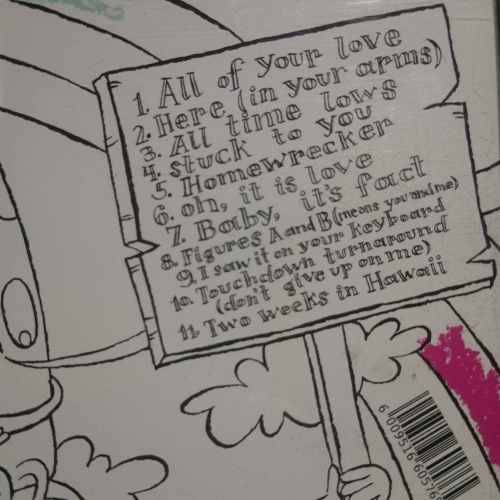 1. All of your love
2. Here (in your arms)
3. All time lows
4. Stuck to you
5. Homewrecker
6. oh, it is love
7. Baby, it's fact
8. Figures A and B (means you and me)
9. I saw it on your keyboard
10. Touchdown turnaround
(don't give up on me)
11. Two weeks in Hawaii
6 009516 60576